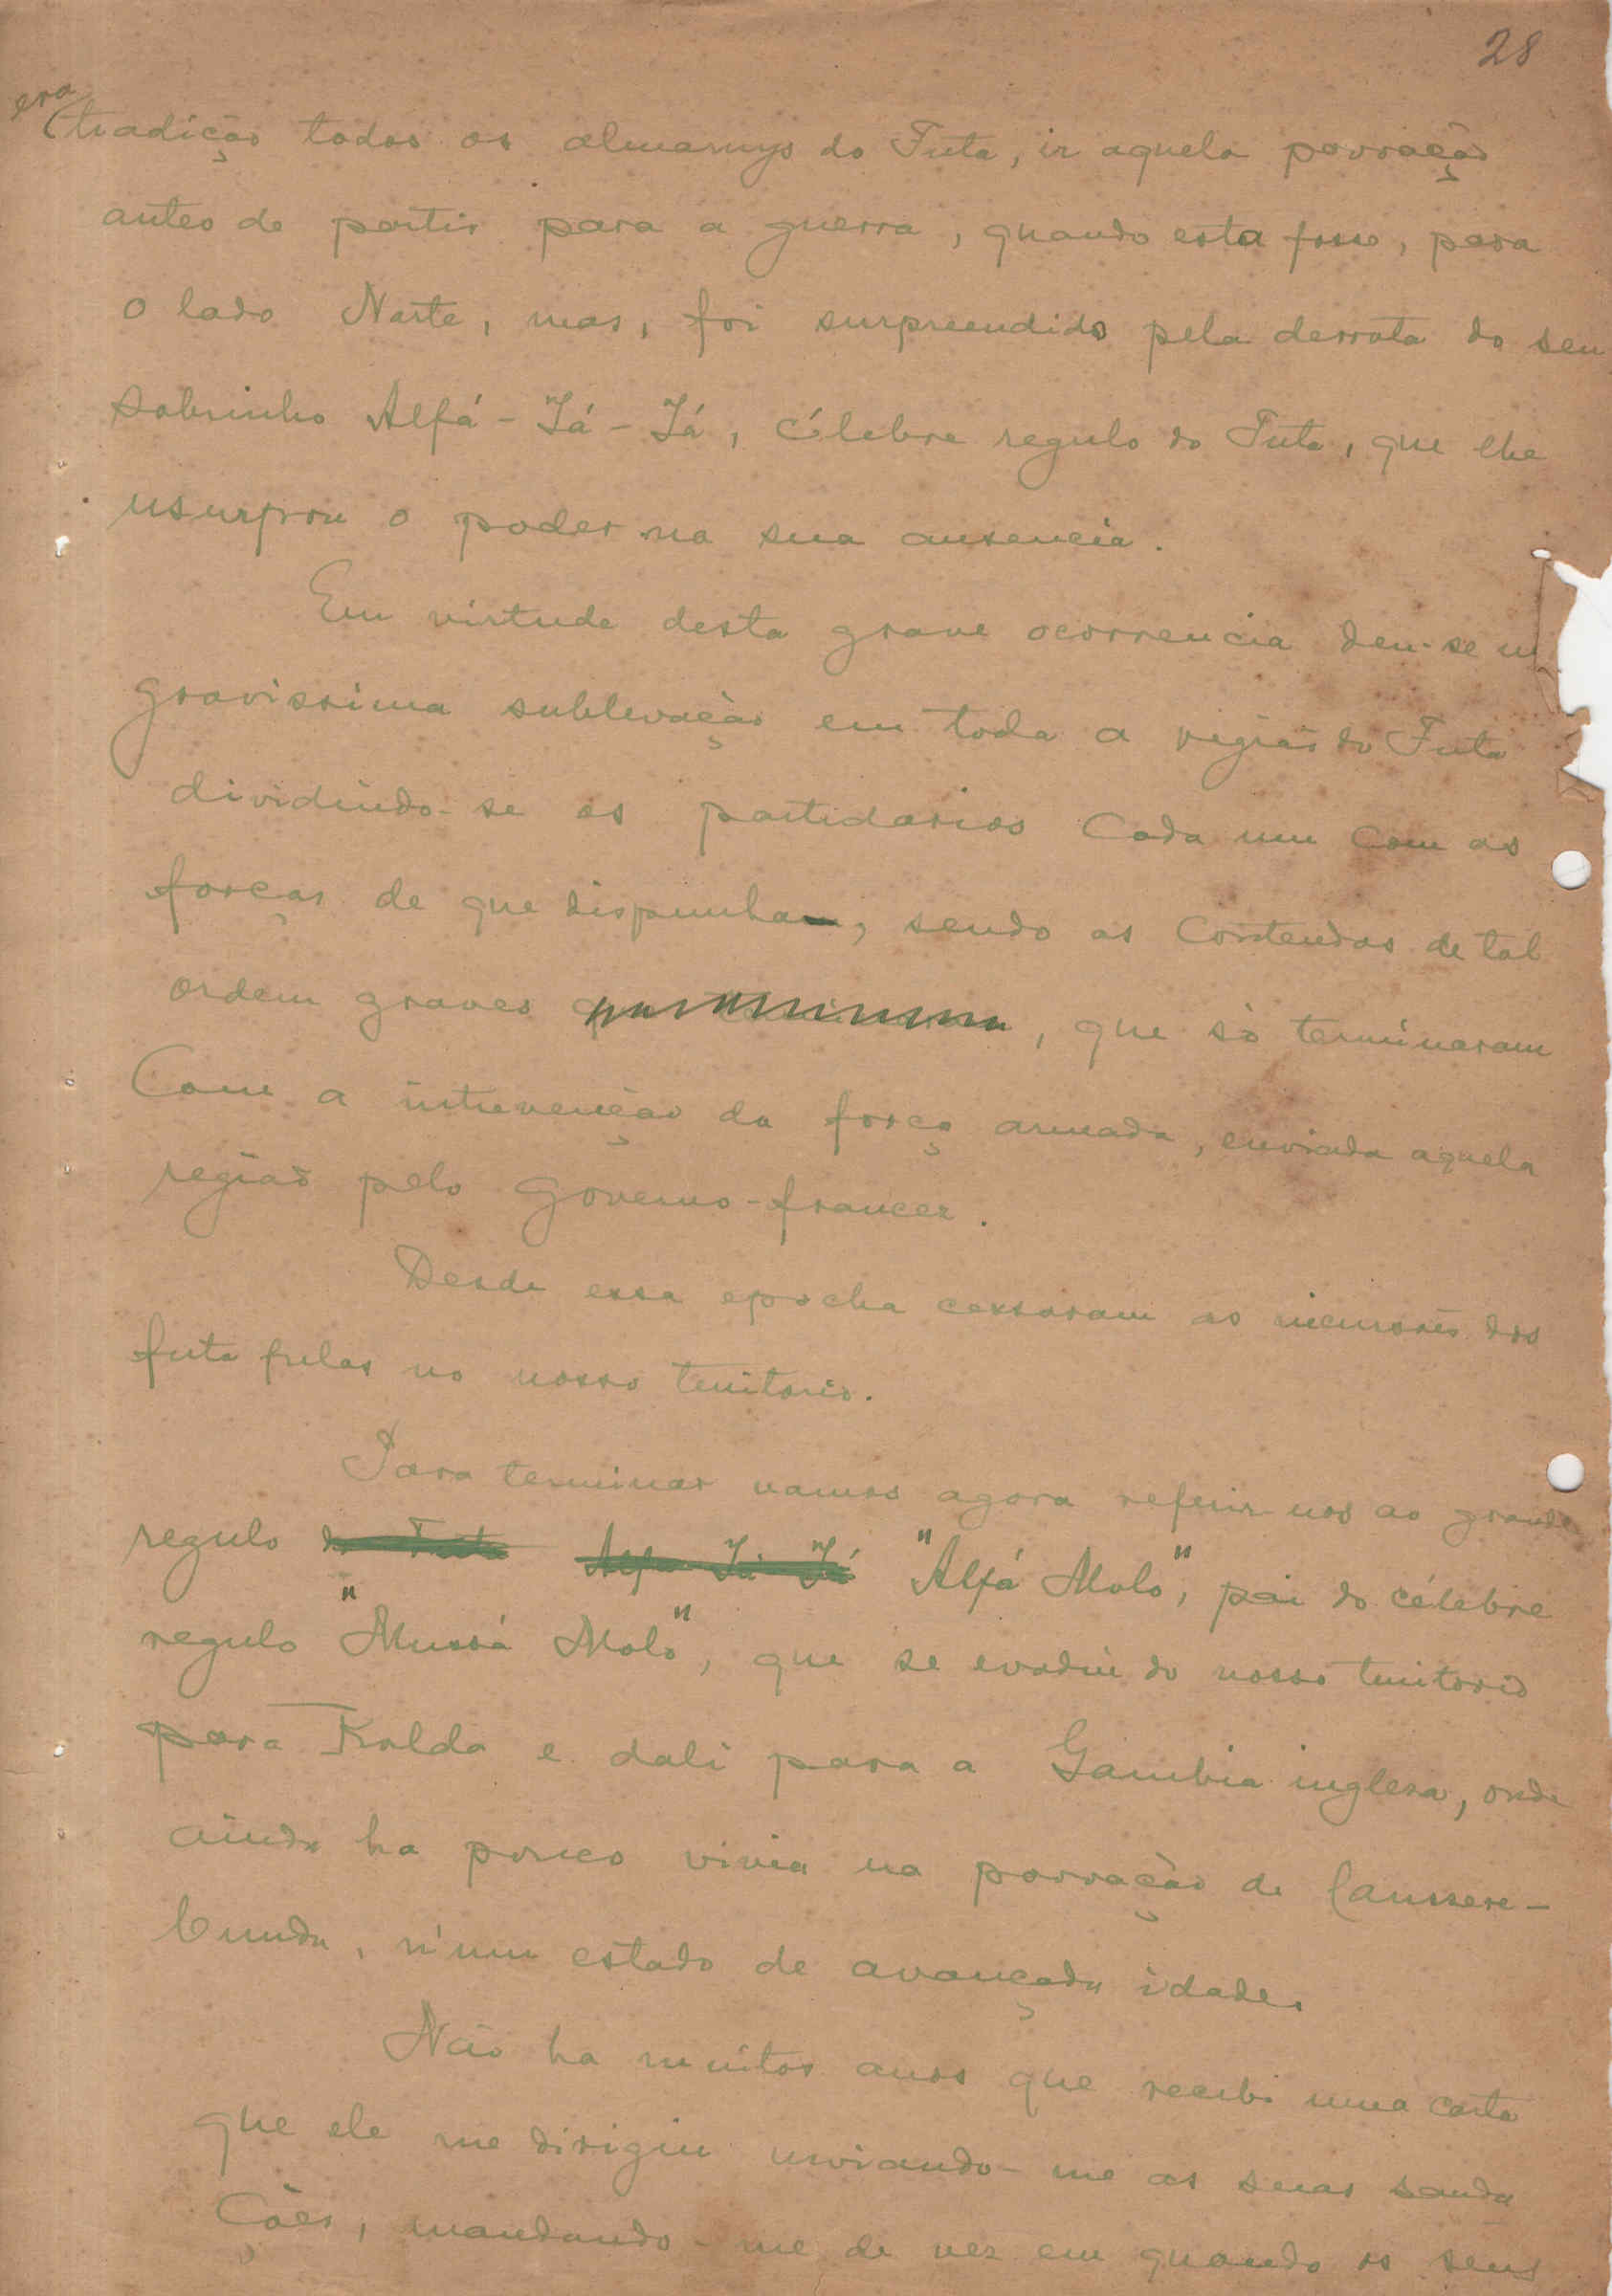 28
era
tradição todos os almamys do Futa, ir aquela povoação
antes de partir para a guerra, quando esta fosse, para
o lado Norte, mas, foi surpreendido pela derrota do seu
sobrinho Alfá-Iá-Iá, célebre regulo do Futa, que lhe
usurpou o poder na sua ausencia.
Em virtude desta grave ocorrencia deu-se
gravissima sublevação em toda a região do Futa
dividindo-se os partidarios cada um com as
forças de que dispunham, sendo as contendas de tal
ordem graves, que só terminaram
com a intrevenção da força armada, enviada aquela
região pelo governo-francez.
Desde essa epocha cessaram as incursões dos
futa fulas no nosso territorio.
Para terminar vamos agora referir-nos ao grande
regulo do Futa Alfa Iá Iá "Alfá Molo", pai do célebre
regulo "Mussá Molo", que se evadiu do nosso territorio
para Kolda e dali para a Gambia inglesa, onde
ainda ha pouco vivia na povoação de
Cunda, n'um estado de avançada idade.
Não ha muitos anos que recebi uma carta
que ele me dirigiu inviando-me as suas sauda
ções, mandando-me de vez em quando os seus